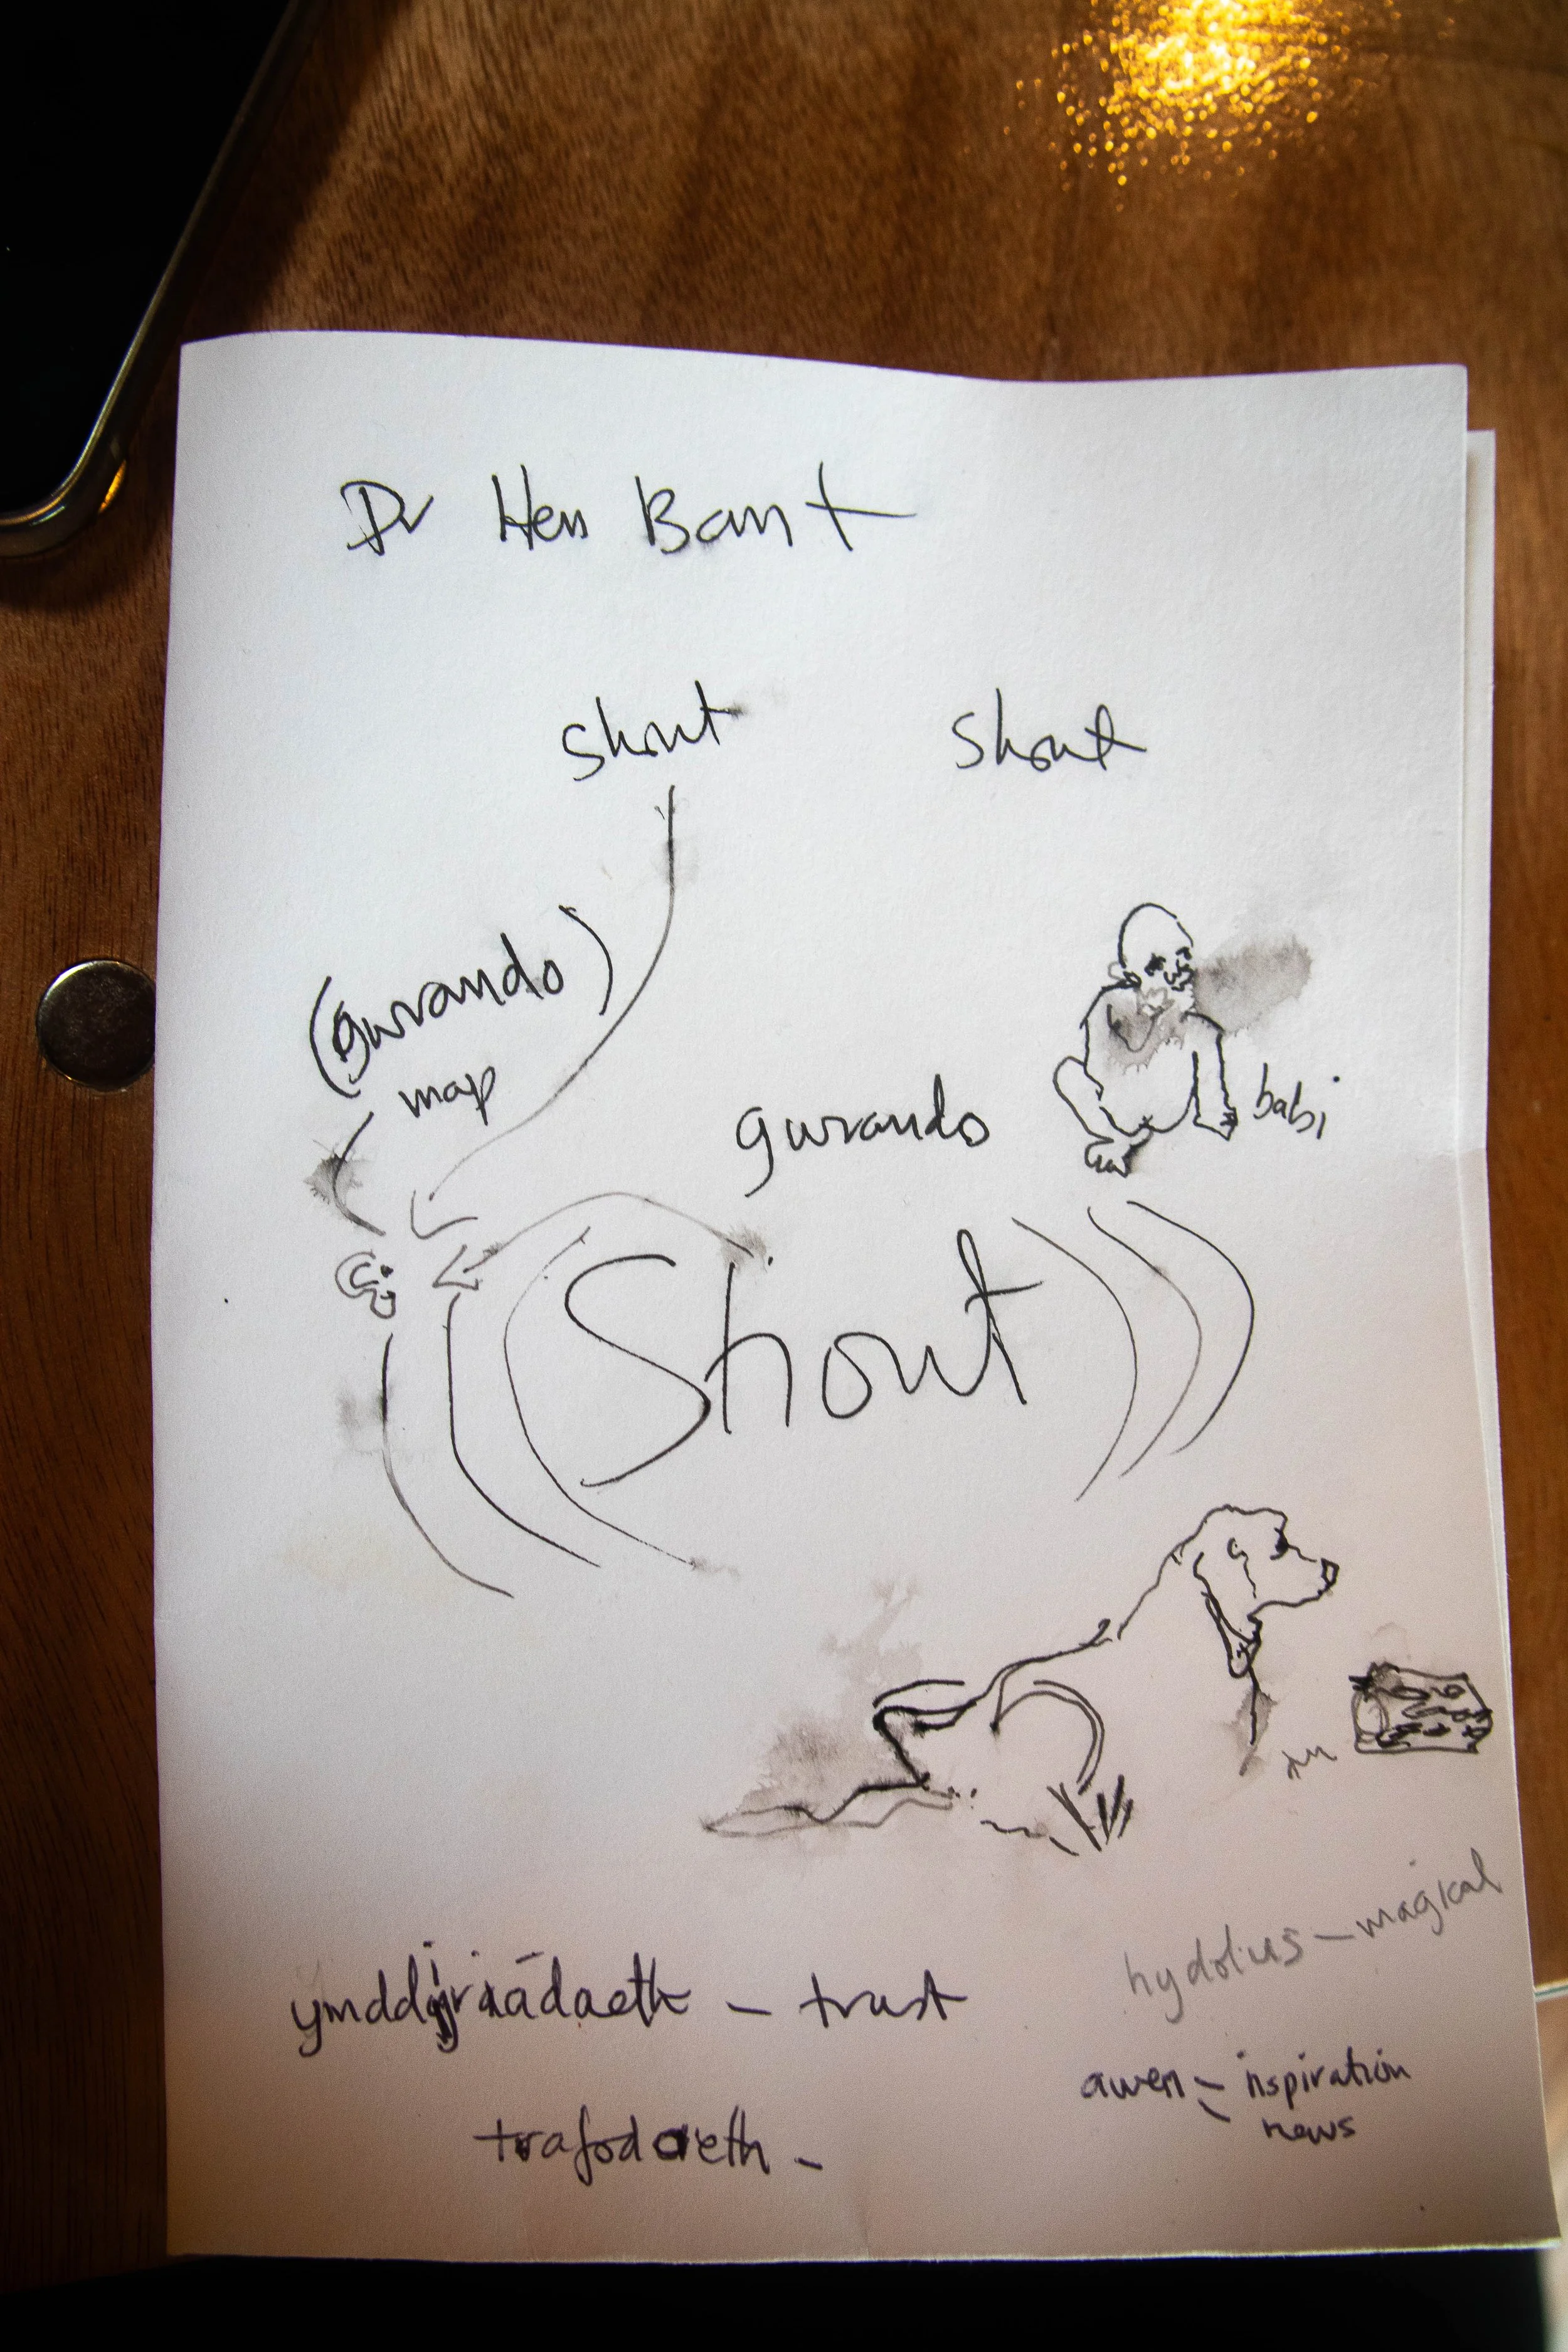 Dr Hen Bant
Shout Shout
(gwrando)
map
gwrando
babi
Shout
hydolus – magical
– trust
awen – inspiration
news
trafodaeth –